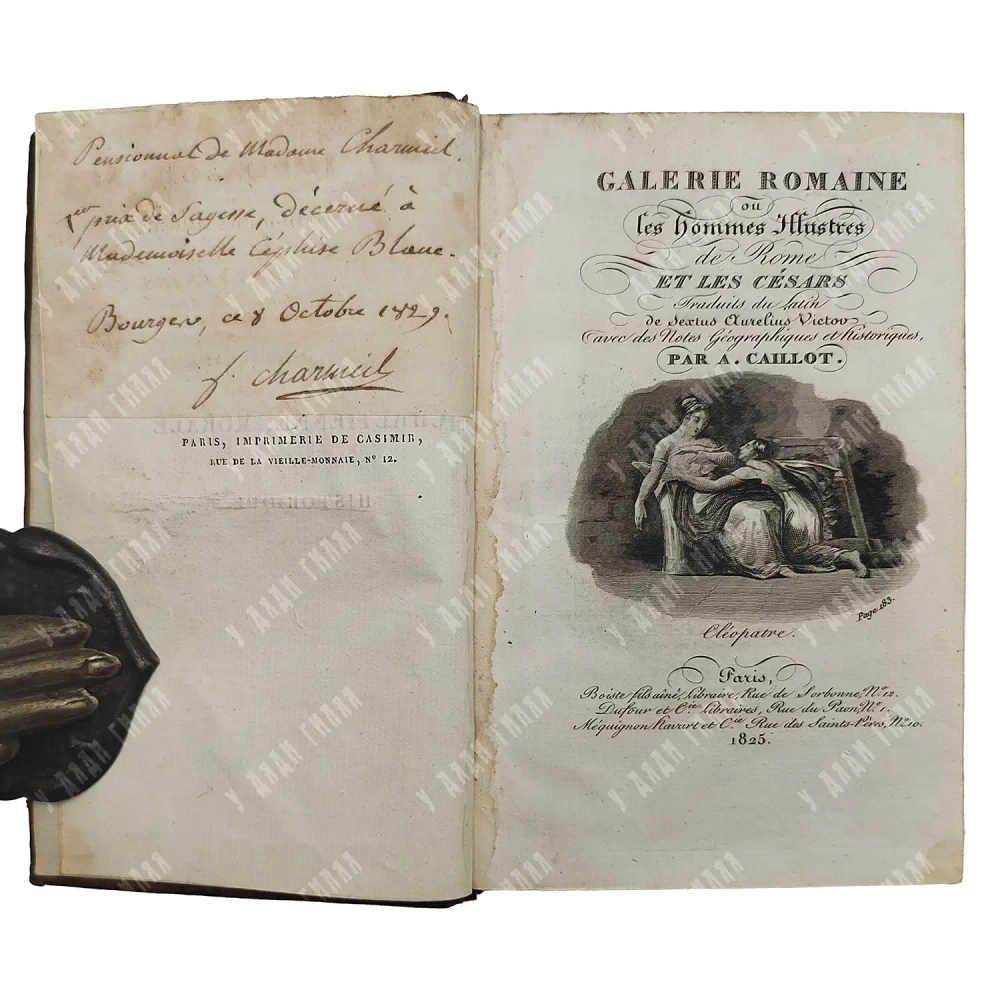 Pensionnat de Madame Charmeil.
1er prix de Sagesse, décerné à
Mademoiselle Céphise Blanc.
Bourges, ce 8 Octobre 1829.
f. charmeil
MORALE
PARIS, IMPRIMERIE DE CASIMIR,
RUE DE LA VIEILLE-MONNAIE, Nº 12.
HISTORIQUE
GALERIE ROMAINE
ou
les Hommes Illustres
de Rome
ET LES CÉSARS
Traduits du latin
de Sextus Aurelius Victor
avec des Notes Géographiques et historiques,
PAR A. CAILLOT.
Page 183.
Cléopatre.
Paris,
Boiste fils ainé, Libraire, Rue de Sorbonne, Nº 12.
Dufour et Cie. Libraires, Rue du Paon, Nº 1.
Méquignon Havart et Cie Rue des Saints-Pères, Nº 10.
1825.
У ДЯДИ ГИЛЯЯ